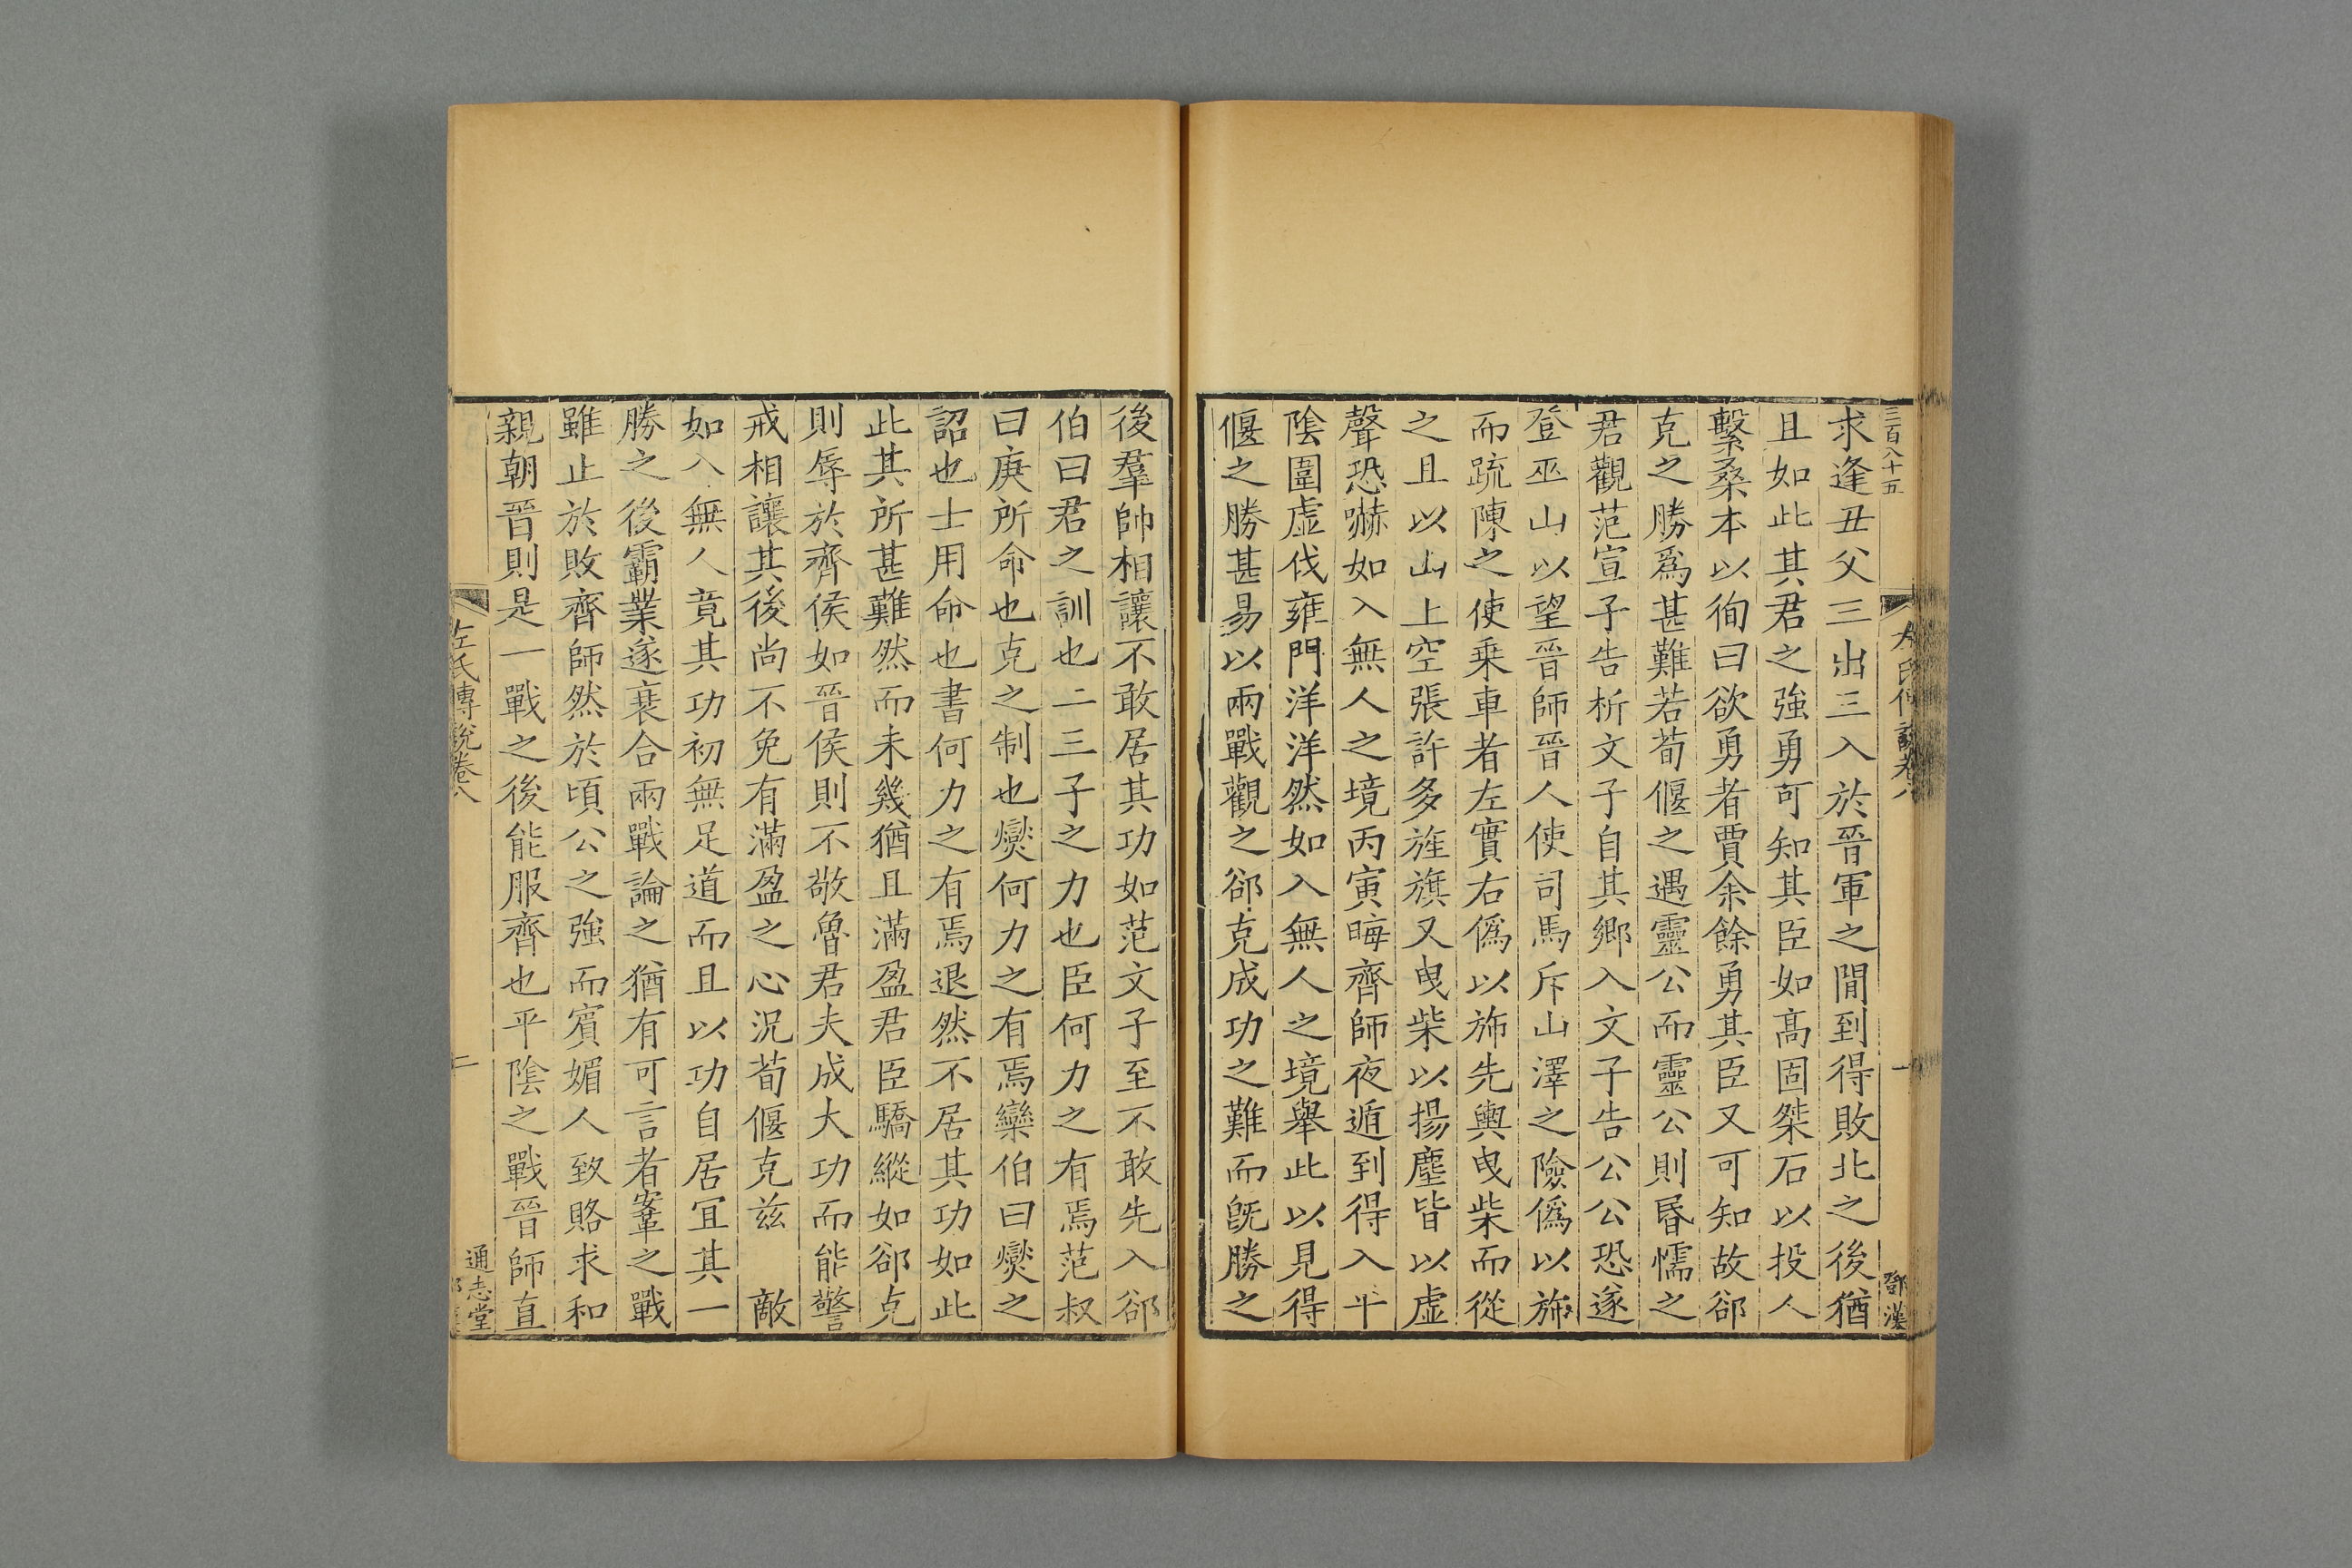 三百八十五
求逢丑父三出三入於晉軍之間到得敗北之後猶
且如此其君之強勇可知其臣如髙固桀石以投人
繫桑本以徇曰欲勇者賈余餘勇其臣又可知故郤
克之勝爲甚難若荀偃之遇靈公而靈公則昬懦之
君觀范宣子告析文子自其鄉入文子告公公恐遂
登巫山以望晉師晉人使司馬斥山澤之險僞以斾
而疏陳之使乗車者左實右僞以斾先輿曳柴而從
之且以山上空張許多旌旗又曳柴以揚塵皆以虚
聲恐嚇如入無人之境丙寅晦齊師夜遁到得入平
陰圍虚伐雍門洋洋然如入無人之境舉此以見得
偃之勝甚易以兩戰觀之郤克成功之難而旣勝之
一
鄧漢
後羣帥相讓不敢居其功如范文子至不敢先入郤
伯曰君之訓也二三子之力也臣何力之有焉范叔
曰庚所命也克之制也燮何力之有焉欒伯曰燮之
詔也士用命也書何力之有焉退然不居其功如此
此其所甚難然而未幾猶且滿盈君臣驕縱如郤克
則辱於齊侯如晉侯則不敬魯君夫成大功而能警
戒相讓其後尚不免有滿盈之心況荀偃克兹 敵
如入無人竟其功初無足道而且以功自居宜其一
勝之後霸業遂衰合兩戰論之猶有可言者鞌之戰
雖止於敗齊師然於頃公之強而賓媚人致賂求和
親朝晉則是一戰之後能服齊也平陰之戰晉師直
左氏傳說卷八
二
通志堂